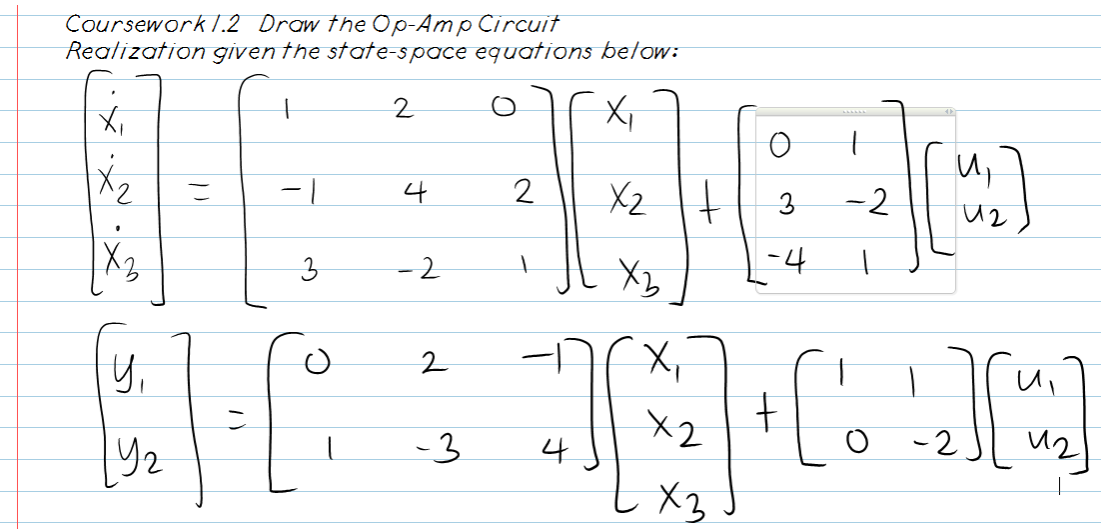 Coursework 1.2 Draw the Op-Amp Circuit
Realization given the state-space equations below:
[ẋ₁ ẋ₂ ẋ₃] = [1 2 0; -1 4 2; 3 -2 1] [x₁ x₂ x₃] + [0 1; 3 -2; -4 1] [u₁ u₂]
[y₁ y₂] = [0 2 -1; 1 -3 4] [x₁ x₂ x₃] + [1 1; 0 -2] [u₁ u₂]